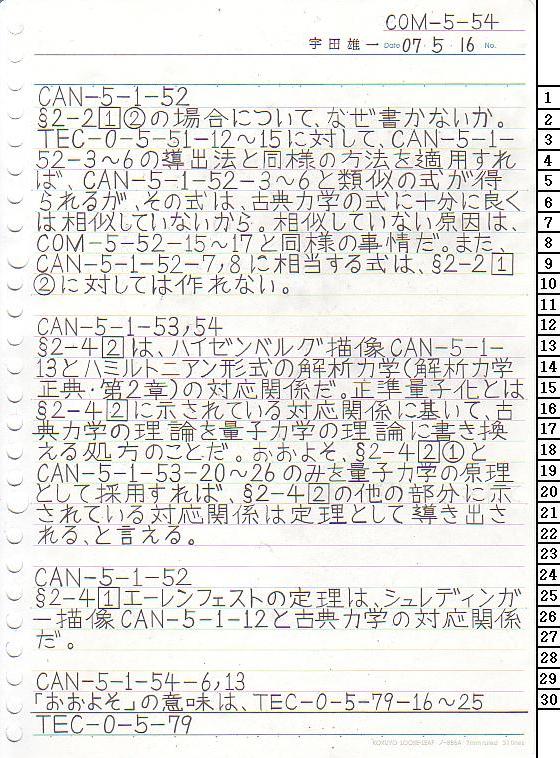 COM-5-54
宇田雄一 Date 07・5・16 No.
CAN-5-1-52
§2-2[1]②の場合について、なぜ書かないか。
TEC-0-5-51-12～15に対して、CAN-5-1-
52-3～6の導出法と同様の方法を適用すれ
ば、CAN-5-1-52-3～6と類似の式が得
られるが、その式は、古典力学の式に十分に良く
は相似していないから。相似していない原因は、
COM-5-52-15～17と同様の事情だ。また、
CAN-5-1-52-7,8に相当する式は、§2-2[1]
②に対しては作れない。
CAN-5-1-53,54
§2-4[2]は、ハイゼンベルグ描像CAN-5-1-
13とハミルトニアン形式の解析力学(解析力学
正典・第2章)の対応関係だ。正準量子化とは
§2-4[2]に示されている対応関係に基いて、古
典力学の理論を量子力学の理論に書き換
える処方のことだ。おおよそ、§2-4[2]①と
CAN-5-1-53-20～26のみを量子力学の原理
として採用すれば、§2-4[2]の他の部分に示
されている対応関係は定理として導き出さ
れる、と言える。
CAN-5-1-52
§2-4[1]エーレンフェストの定理は、シュレディンガ
ー描像CAN-5-1-12と古典力学の対応関係
だ。
CAN-5-1-54-6,13
「おおよそ」の意味は、TEC-0-5-79-16～25
TEC-0-5-79
KOKUYO LOOSE-LEAF ノ-886A 7mm ruled 31 lines
1
2
3
4
5
6
7
8
9
10
11
12
13
14
15
16
17
18
19
20
21
22
23
24
25
26
27
28
29
30